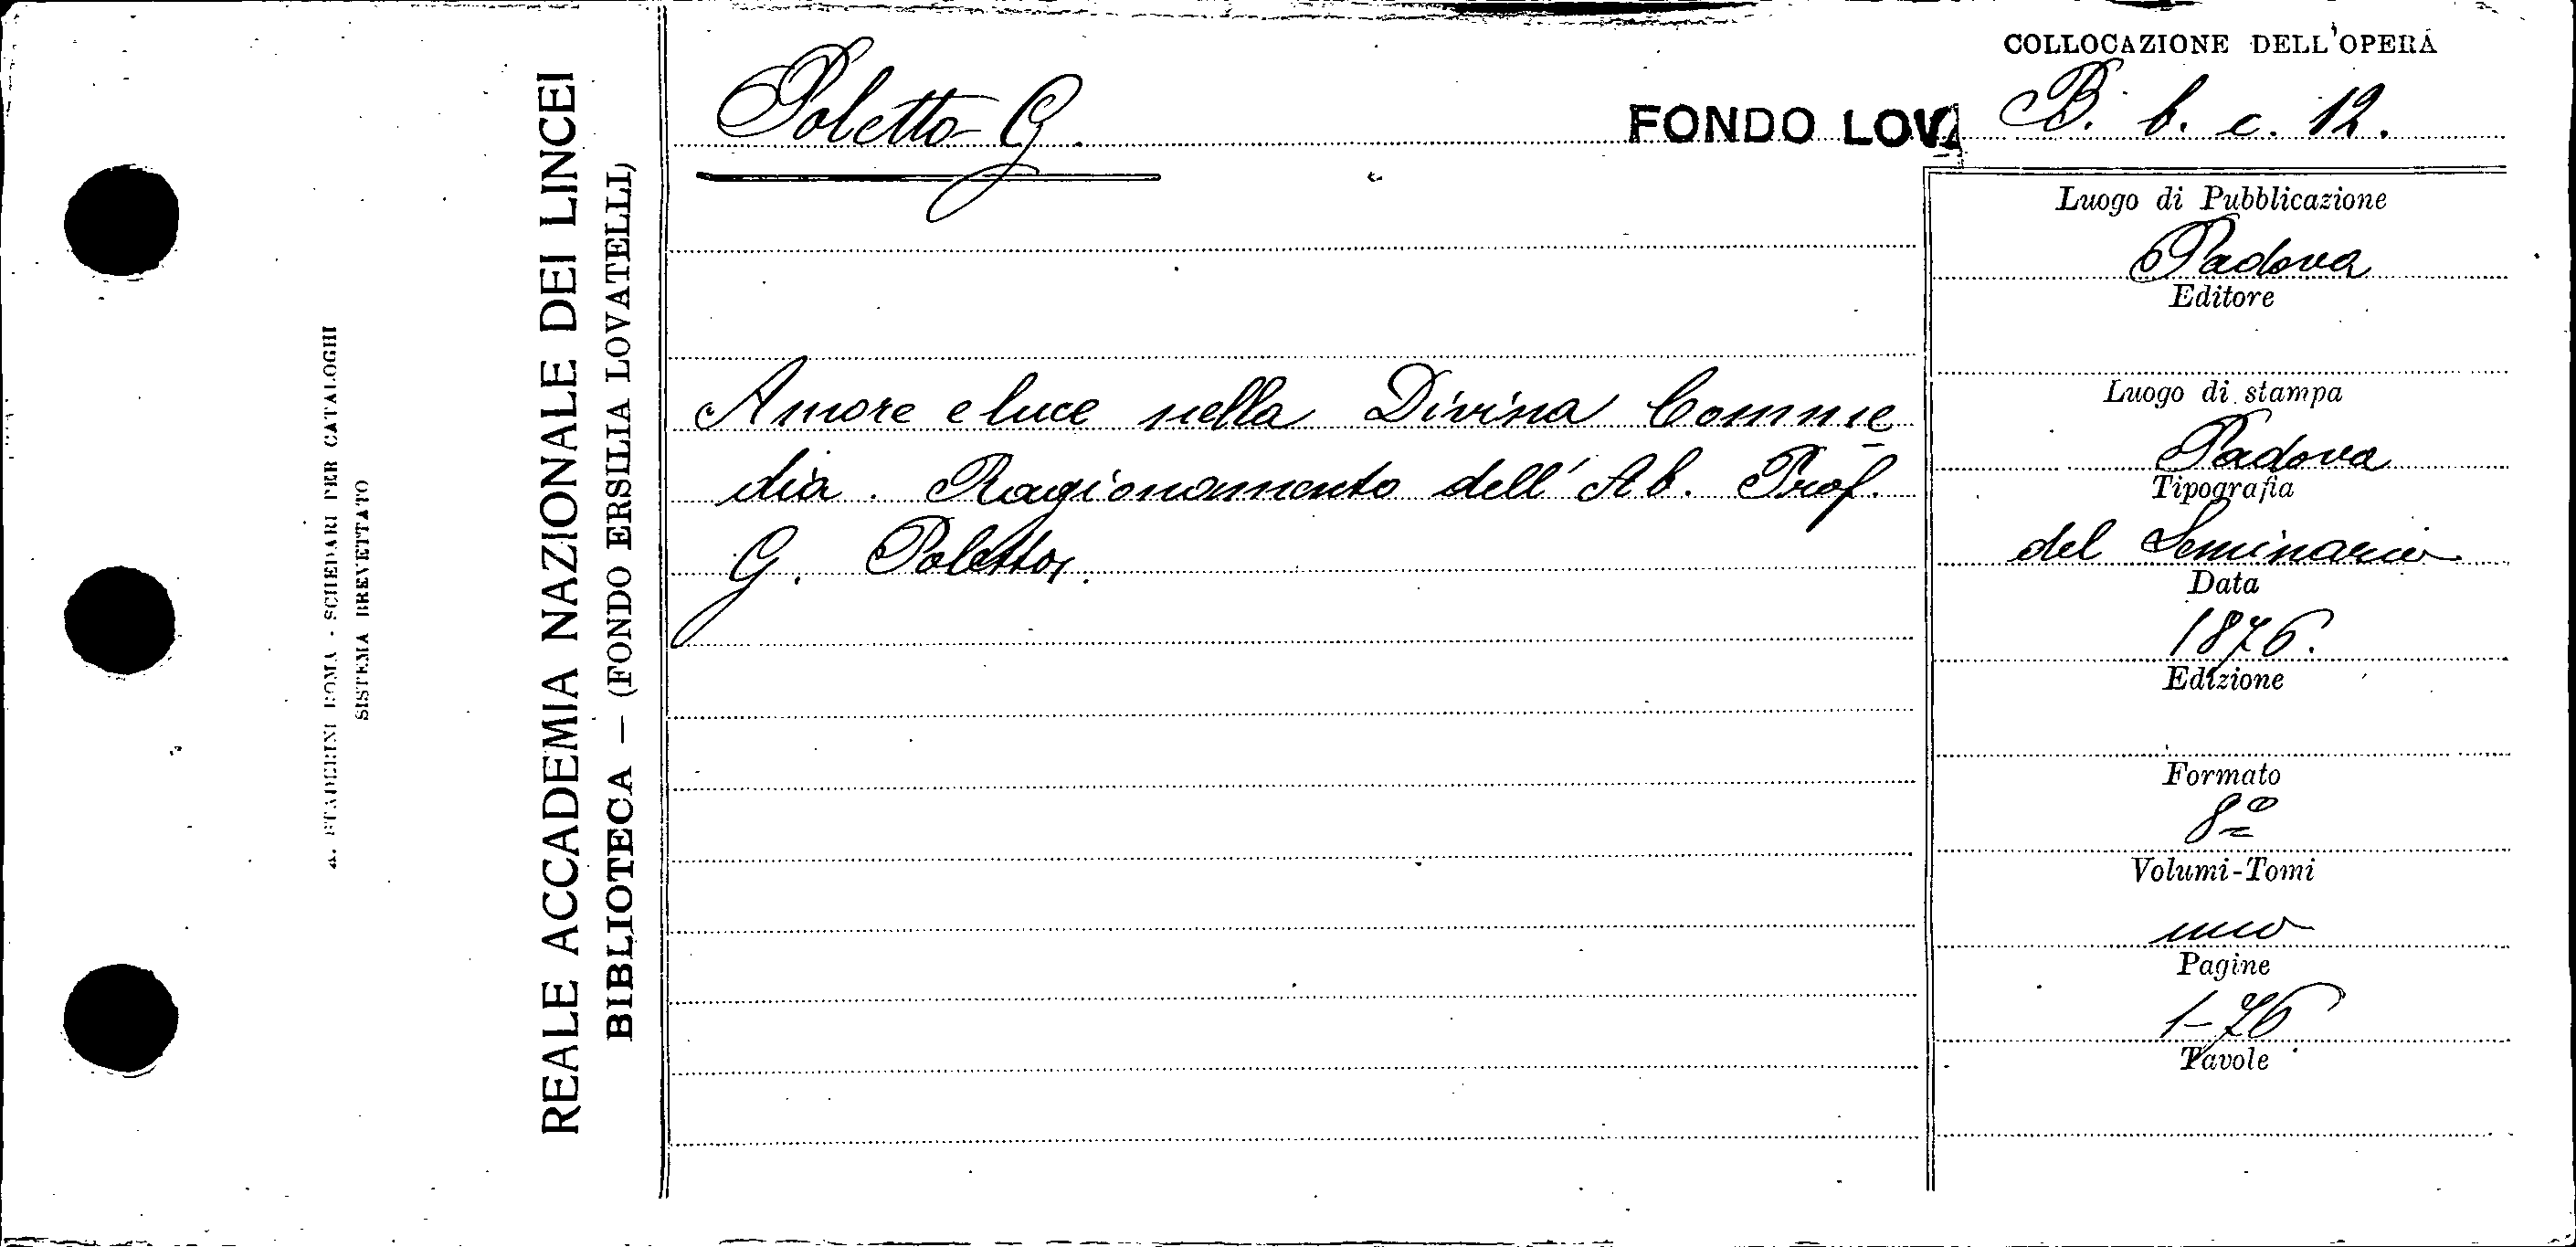 A. STADERINI ROMA - SCHEDARI PER CATALOGHI
SISTEMA BREVETTATO
REALE ACCADEMIA NAZIONALE DEI LINCEI
BIBLIOTECA — (FONDO ERSILIA LOVATELLI)
Poletto G.
FONDO LOV
Amore e luce nella Divina Comme
dia. Ragionamento dell' Ab. Prof.
G. Poletto.
COLLOCAZIONE DELL'OPERA
B. b. c. 12.
Luogo di Pubblicazione
Padova
Editore
Luogo di stampa
Padova
Tipografia
del Seminario
Data
1876.
Edizione
Formato
8º
Volumi-Tomi
uno
Pagine
1-76
Tavole